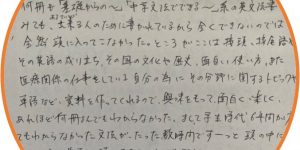 何冊も「基礎からの〜」「中学文法でできる〜」系の英文法書
みても、出来る人のために書かれているから全くできない
全然頭に入ってこなかった。ところがここは接頭、接
その英語の成り立ち、その国の文化や歴史、面白い、使い方、また
医療関係の仕事をしている自分の為にその分野に関するトピックや
単語など、資料を作ってくれるので、興味をもって、面白く楽しく、
あれほど何冊よんでもわからなかった、まして学生時代6年間か
てもわからなかった文法が、たった数時間ですーっと頭の中に